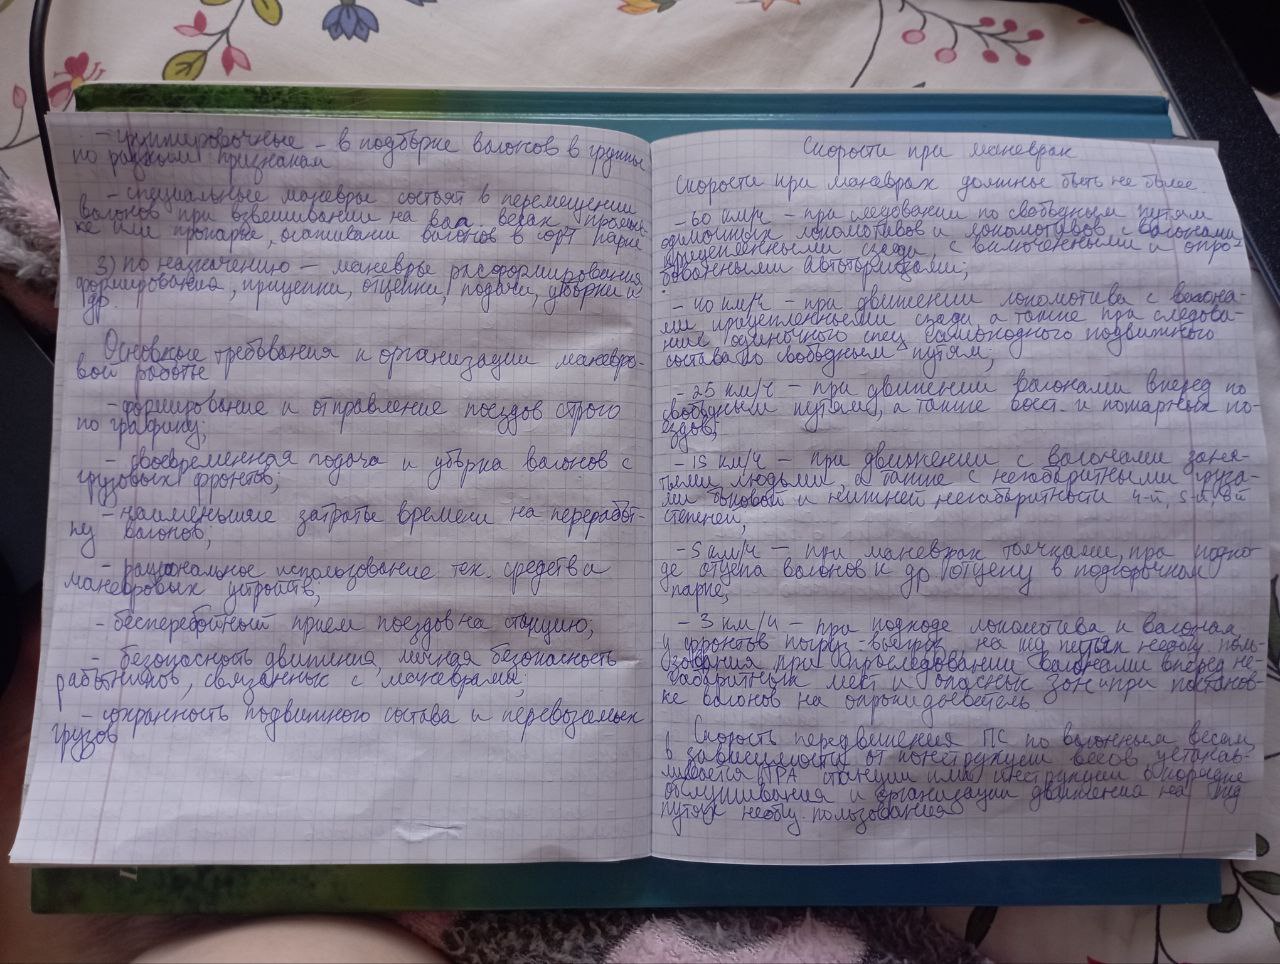 - группировочные - в подборке вагонов в группы
по разным признакам
- специальные маневры состоят в перемещении
вагонов при взвешивании на ваг. весах, промыв-
ке или пропарке, осаживании вагонов в сорт парке
3) по назначению - маневры расформирования
формирования, прицепки, отцепки, подачи, уборки и
др.
Основные требования к организации маневро-
вой работы
- формирование и отправление поездов строго
по графику;
- своевременная подача и уборка вагонов с
грузовых фронтов;
- наименьшие затраты времени на переработ-
ку вагонов;
- рациональное использование тех. средств и
маневровых устройств;
- бесперебойный прием поездов на станцию;
- безопасность движения, личная безопасность
работников, связанных с маневрами;
- сохранность подвижного состава и перевозимых
грузов
Скорости при маневрах
Скорости при маневрах должны быть не более:
- 60 км/ч - при следовании по свободным путям
одиночных локомотивов и локомотивов с вагонами
прицепленными сзади, с включенными и опро-
бованными автотормозами;
- 40 км/ч - при движении локомотива с вагона-
ми прицепленными сзади а также при следова-
нии одиночного спец самоходного подвижного
состава по свободным путям;
- 25 км/ч - при движении вагонами вперед по
свободным путям, а также восст. и пожарных по-
ездов;
- 15 км/ч - при движении с вагонами заня-
тыми людьми, а также с негабаритными груза-
ми боковой и нижней негабаритности 4-й, 5-й, 6й
степеней;
- 5 км/ч - при маневрах толчками, при подхо-
де отцепа вагонов к др отцепу в подгорочном
парке;
- 3 км/ч - при подходе локомотива к вагонам
у фронтов погруз-выгруз, на жд путях необщ поль-
зования при проследовании вагонами вперед не-
габаритных мест и опасных зон и при постанов-
ке вагонов на опрокидыватель
Скорость передвижения ПС по вагонным весам
в зависимости от конструкции весов устанав-
ливается ТРА станции или инструкции о порядке
обслуживания и организации движения на жд
путях необщ. пользования